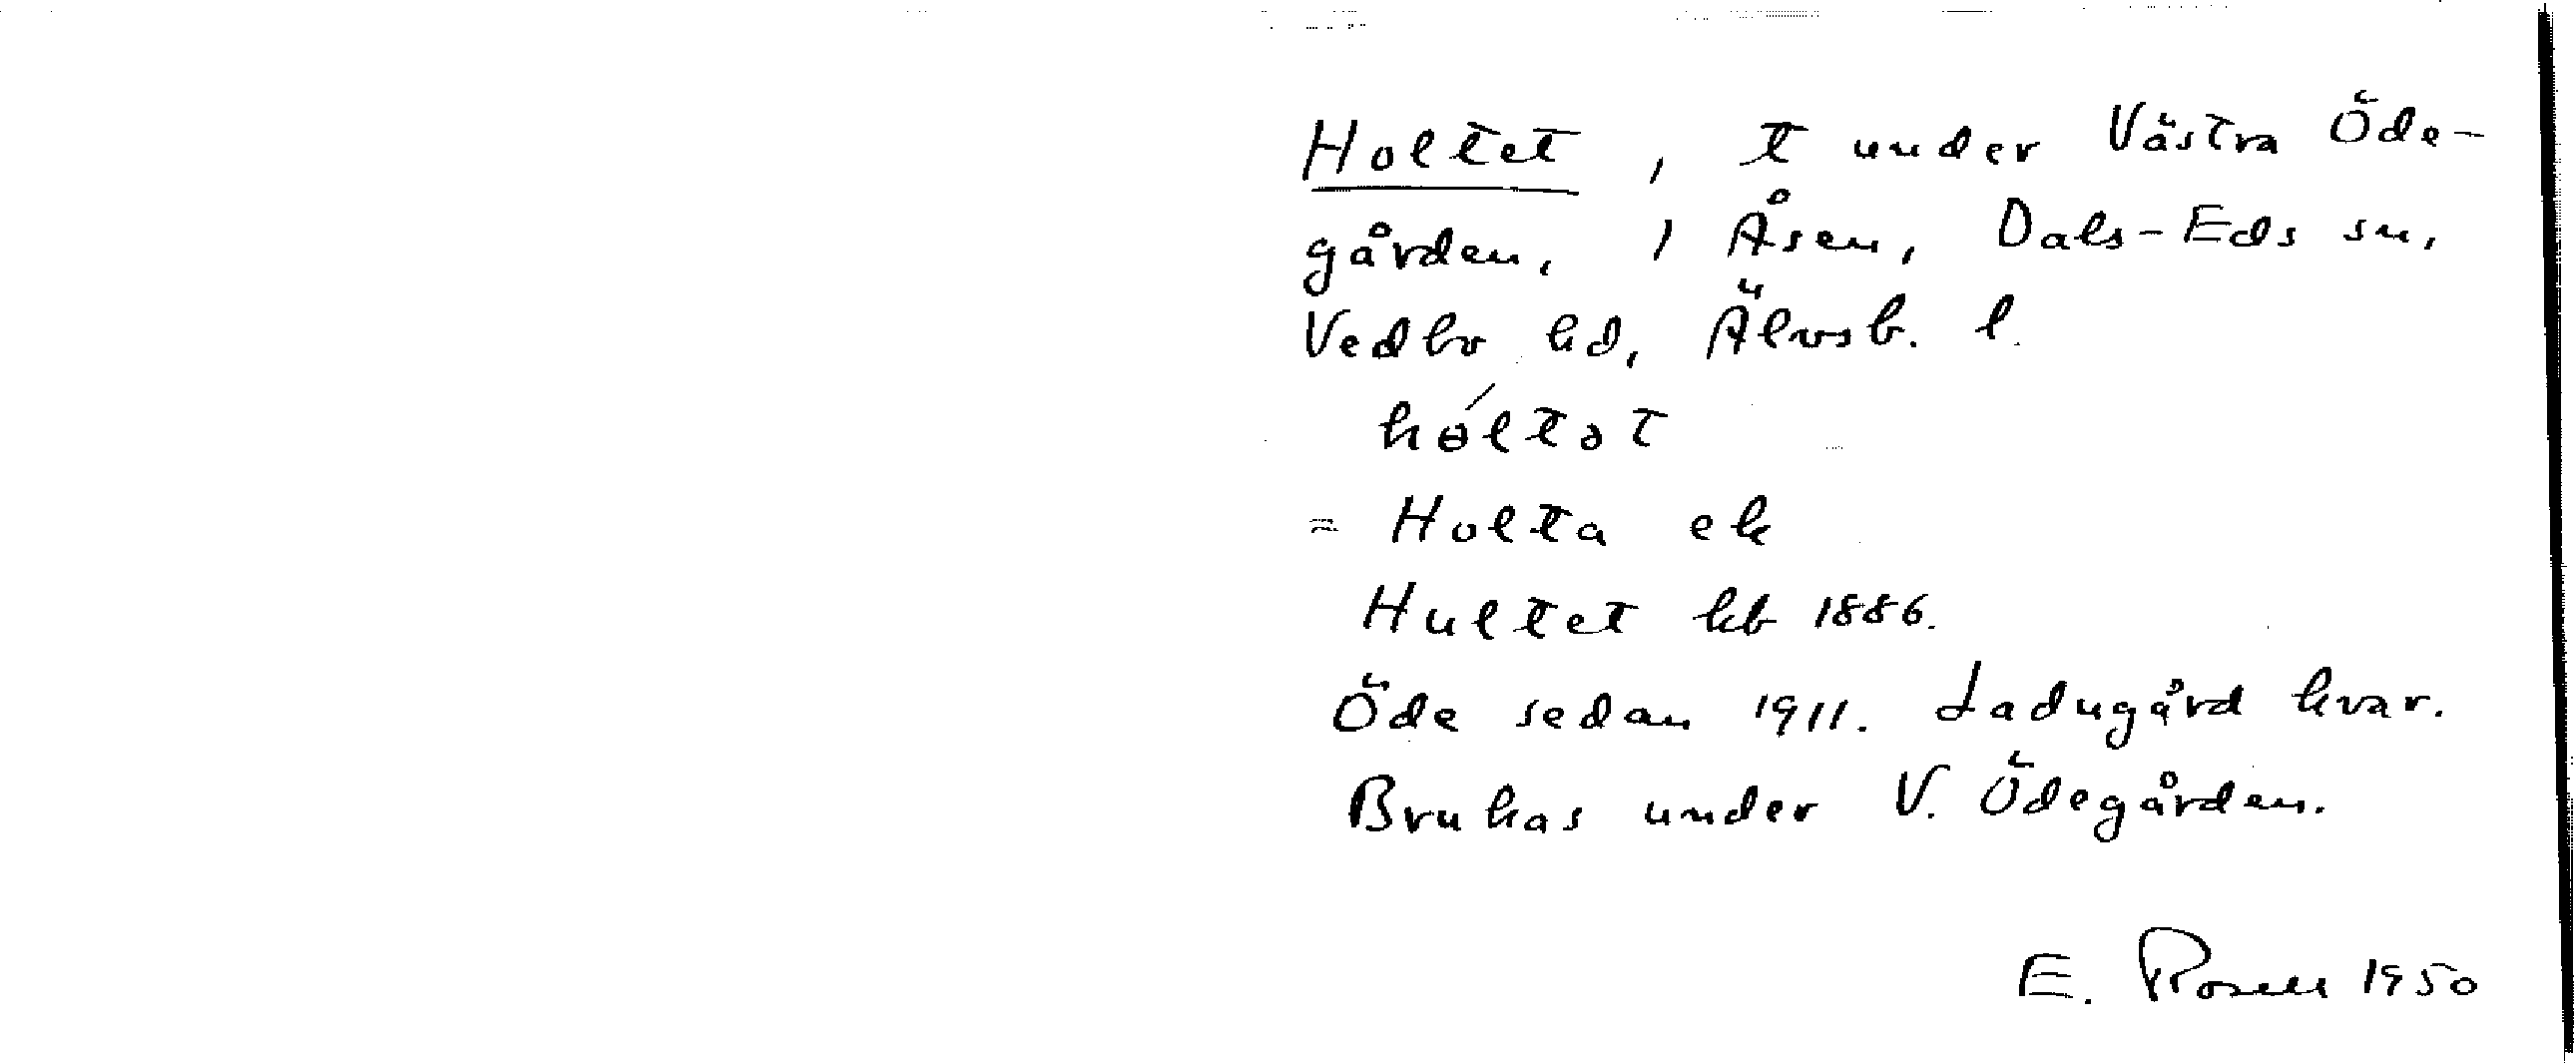 Holtet, t under Västra Öde-
gården, 1 Åsen, Dals-Eds sn,
Vedbo hd, Älvsb. l.
hóltət
= Holta ek
Hultet kb 1886.
Öde sedan 1911. Ladugård kvar.
Brukas under V. Ödegården.
E. Rosell 1950